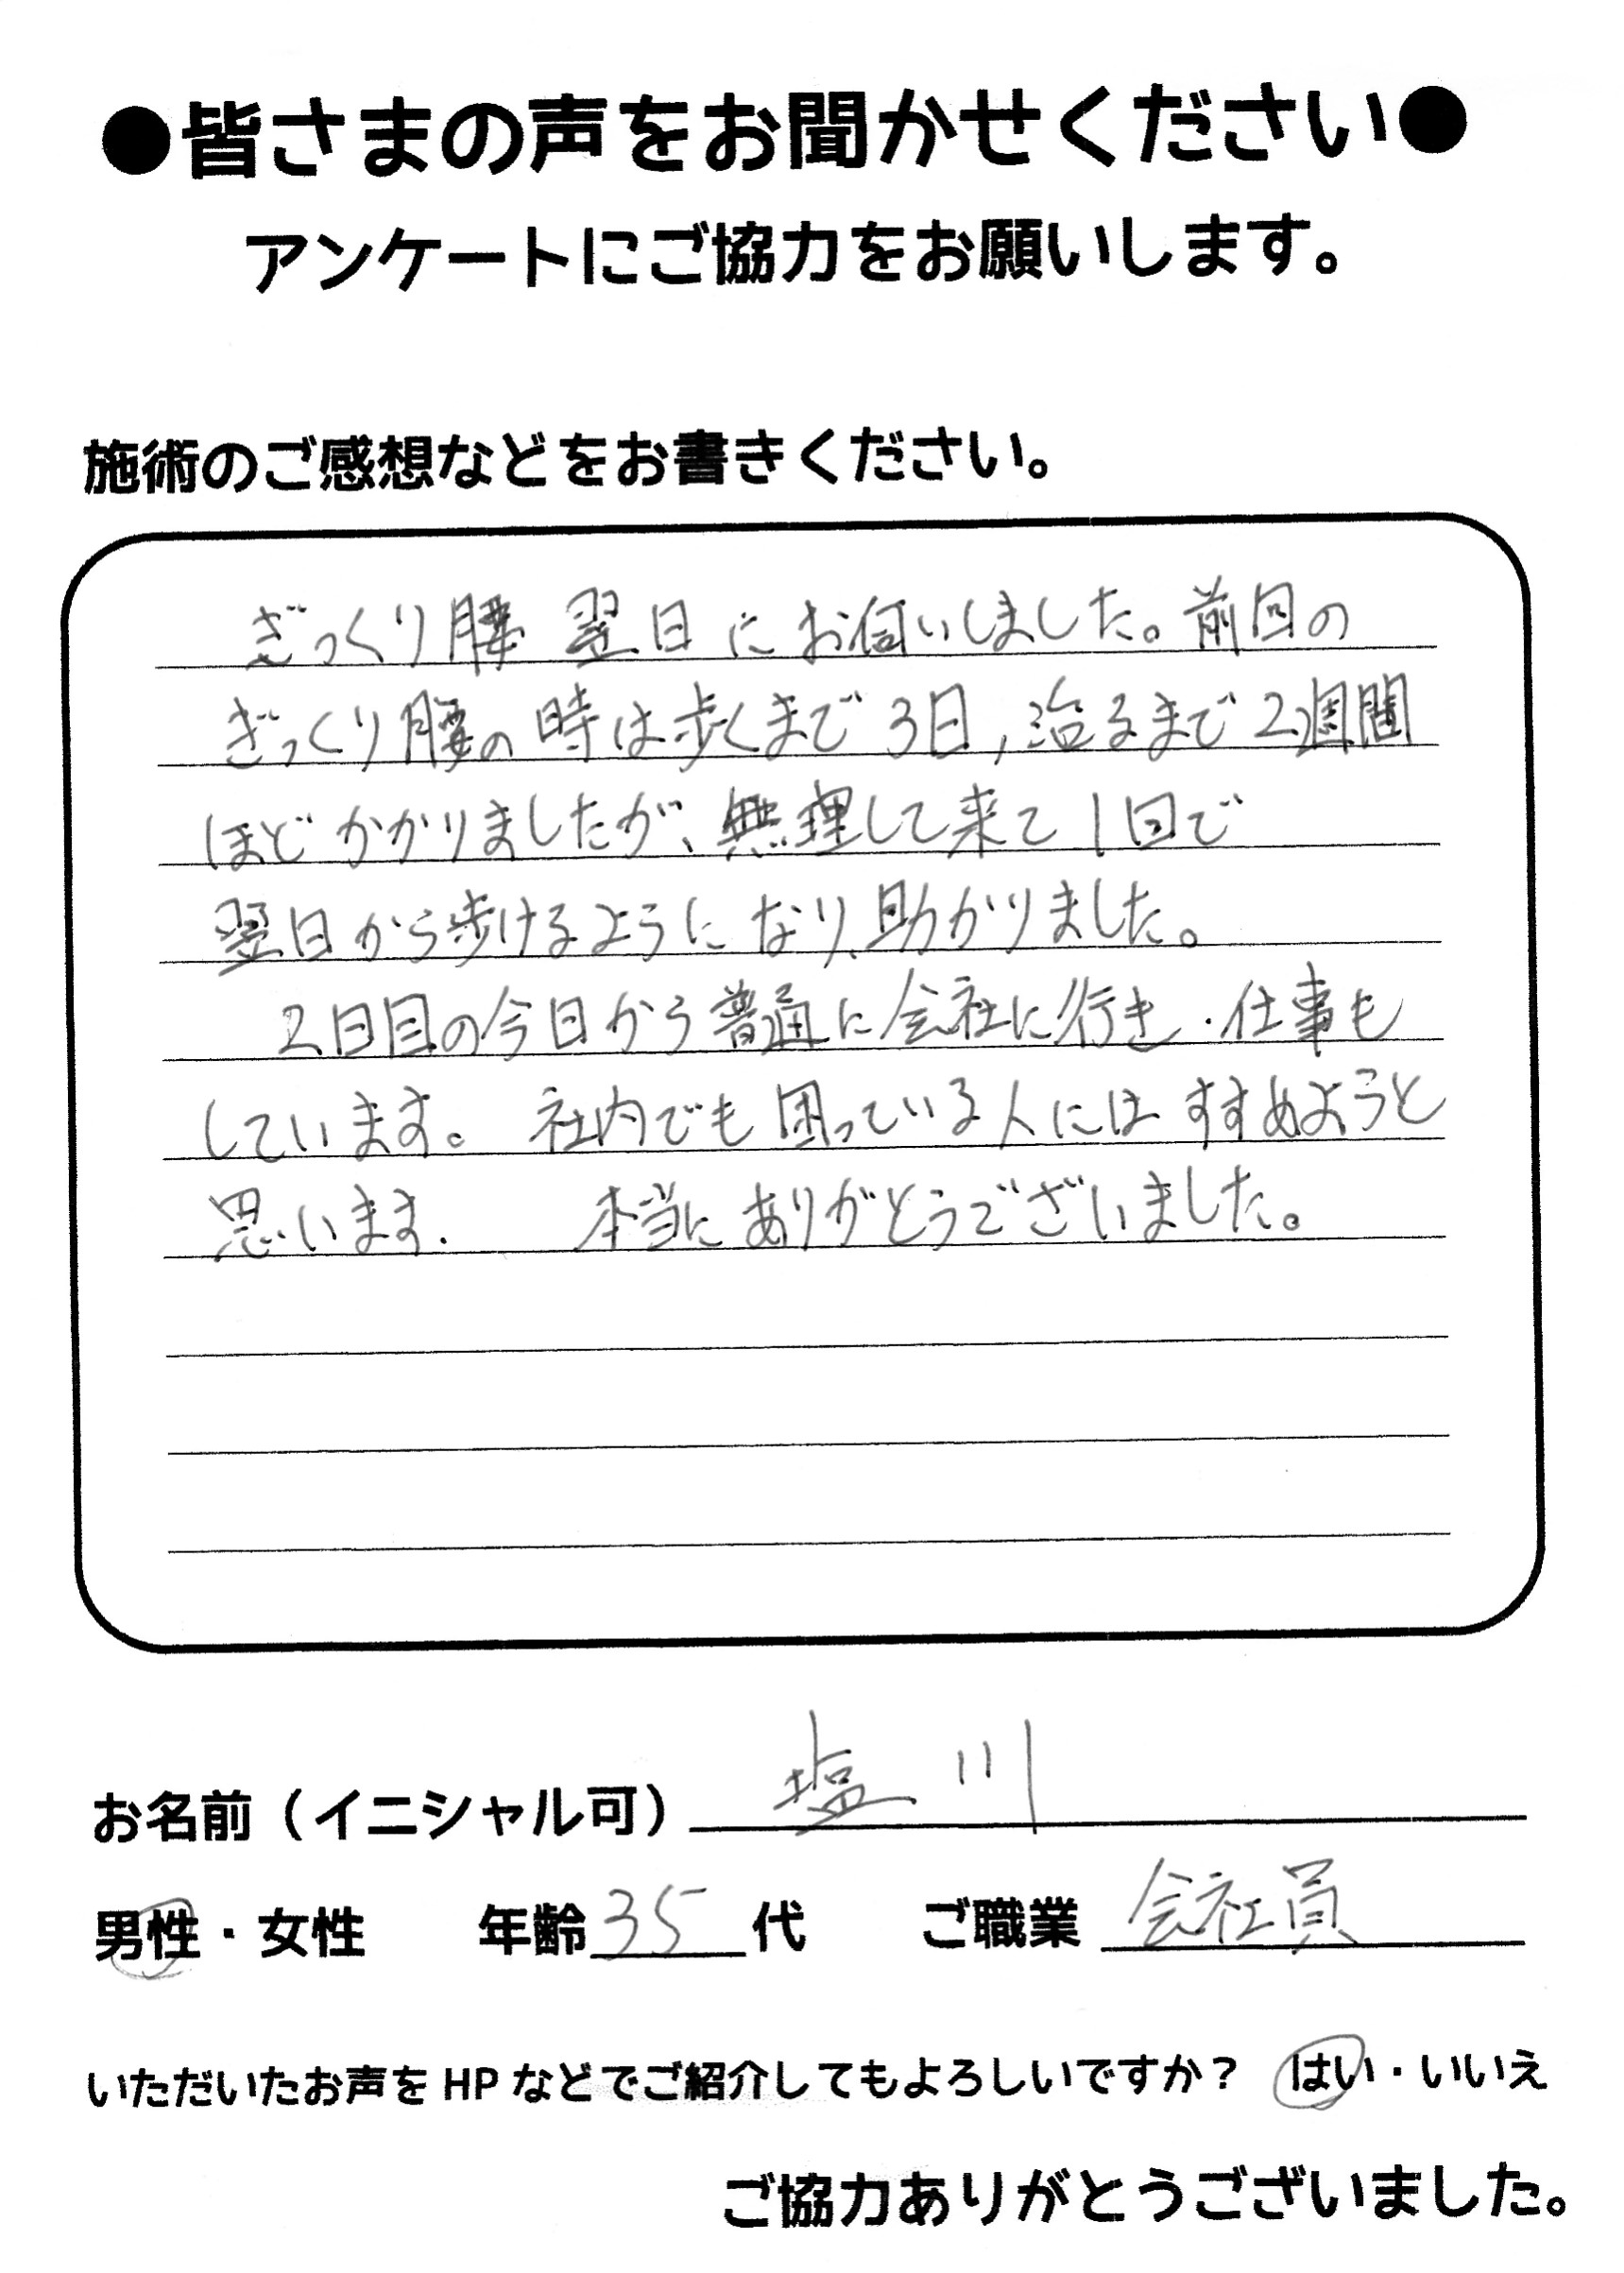 ●皆さまの声をお聞かせください●
アンケートにご協力をお願いします。
施術のご感想などをお書きください。
ぎっくり腰 翌日にお伺いしました。前回の
ぎっくり腰の時は歩くまで3日,治るまで2週間
ほどかかりましたが、無理して来て1回で
翌日から歩けるようになり、助かりました。
2日目の今日から普通に会社に行き、仕事も
しています。 社内でも困っている人にはすすめようと
思います. 本当にありがとうございました。
お名前（イニシャル可） 塩川
男性・女性 年齢 35 代 ご職業 会社員
いただいたお声をHPなどでご紹介してもよろしいですか？ はい・いいえ
ご協力ありがとうございました。